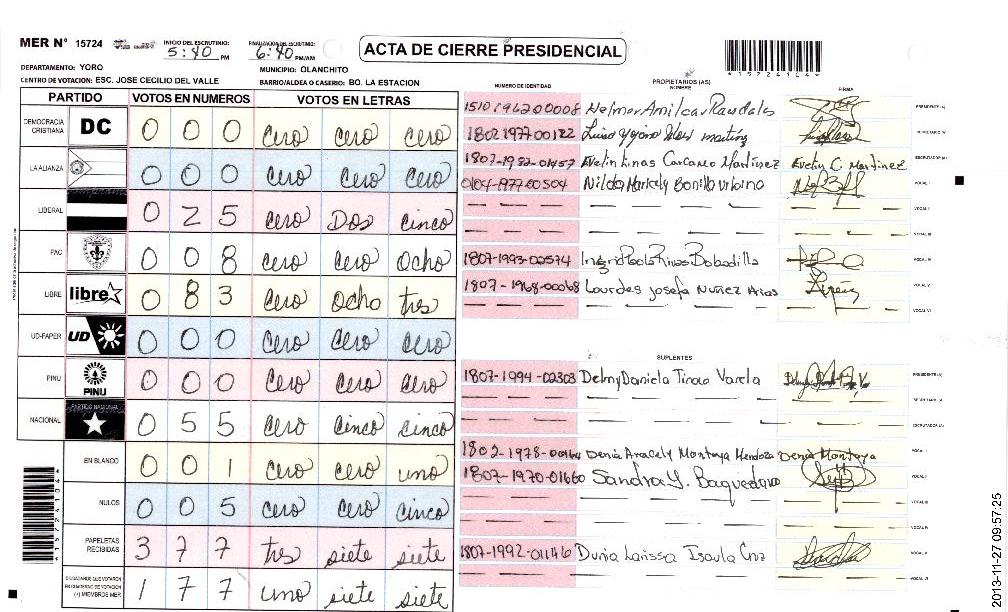 MER N° 15724
INICIO DEL ESCRUTINIO: 5:40 PM
FINALIZACION DEL ESCRUTINIO: 6:40 PM/AM
ACTA DE CIERRE PRESIDENCIAL
*15724104*
DEPARTAMENTO: YORO
MUNICIPIO: OLANCHITO
CENTRO DE VOTACION: ESC. JOSE CECILIO DEL VALLE
BARRIO/ALDEA O CASERIO: BO. LA ESTACION
PARTIDO VOTOS EN NUMEROS VOTOS EN LETRAS
DEMOCRACIA CRISTIANA DC 0 0 0 cero cero cero
LA ALIANZA 0 0 0 cero cero cero
LIBERAL 0 2 5 cero Dos cinco
PAC 0 0 8 cero cero ocho
LIBRE libre 0 8 3 cero ocho tres
UD-FAPER UD 0 0 0 cero cero cero
PINU PINU 0 0 0 cero cero cero
NACIONAL PARTIDO NACIONAL 0 5 5 cero cinco cinco
EN BLANCO 0 0 1 cero cero uno
NULOS 0 0 5 cero cero cinco
PAPELETAS RECIBIDAS 3 7 7 tres siete siete
CIUDADANOS QUE VOTARON EN CUADERNO DE VOTACION (+) MIEMBROS MER 1 7 7 uno siete siete
*15724104*
NUMERO DE IDENTIDAD
PROPIETARIOS (AS)
NOMBRE
FIRMA
1510196200008 Nelmer Amilcar Raudales PRESIDENTE (A)
1802-1977-00122 SECRETARIO (A)
1807-1982-01457 Evelin Linas Carcamo Martinez Evelin C. Martinez ESCRUTADOR (A)
0104-1977-00504 Nilda Maricely Bonilla Urbino VOCAL I
VOCAL II
VOCAL III
1807-1993-02574 Ingrid Paola Rivas Bobadilla VOCAL IV
1807-1968-00068 Lourdes Josefa Nuñez Arias VOCAL V
VOCAL VI
SUPLENTES
1807-1994-02303 Delmy Daniela Tinoco Varela PRESIDENTE (A)
SECRETARIO (A)
ESCRUTADOR (A)
1802-1978-00164 Denia Aracely Montoya Mendoza Denia Montoya VOCAL I
1807-1970-01660 Sandra Y. Baquedano VOCAL II
VOCAL III
VOCAL IV
1807-1992-01146 Dunia Larissa Isaula Cruz VOCAL V
VOCAL VI
2013-11-27 09:57:25